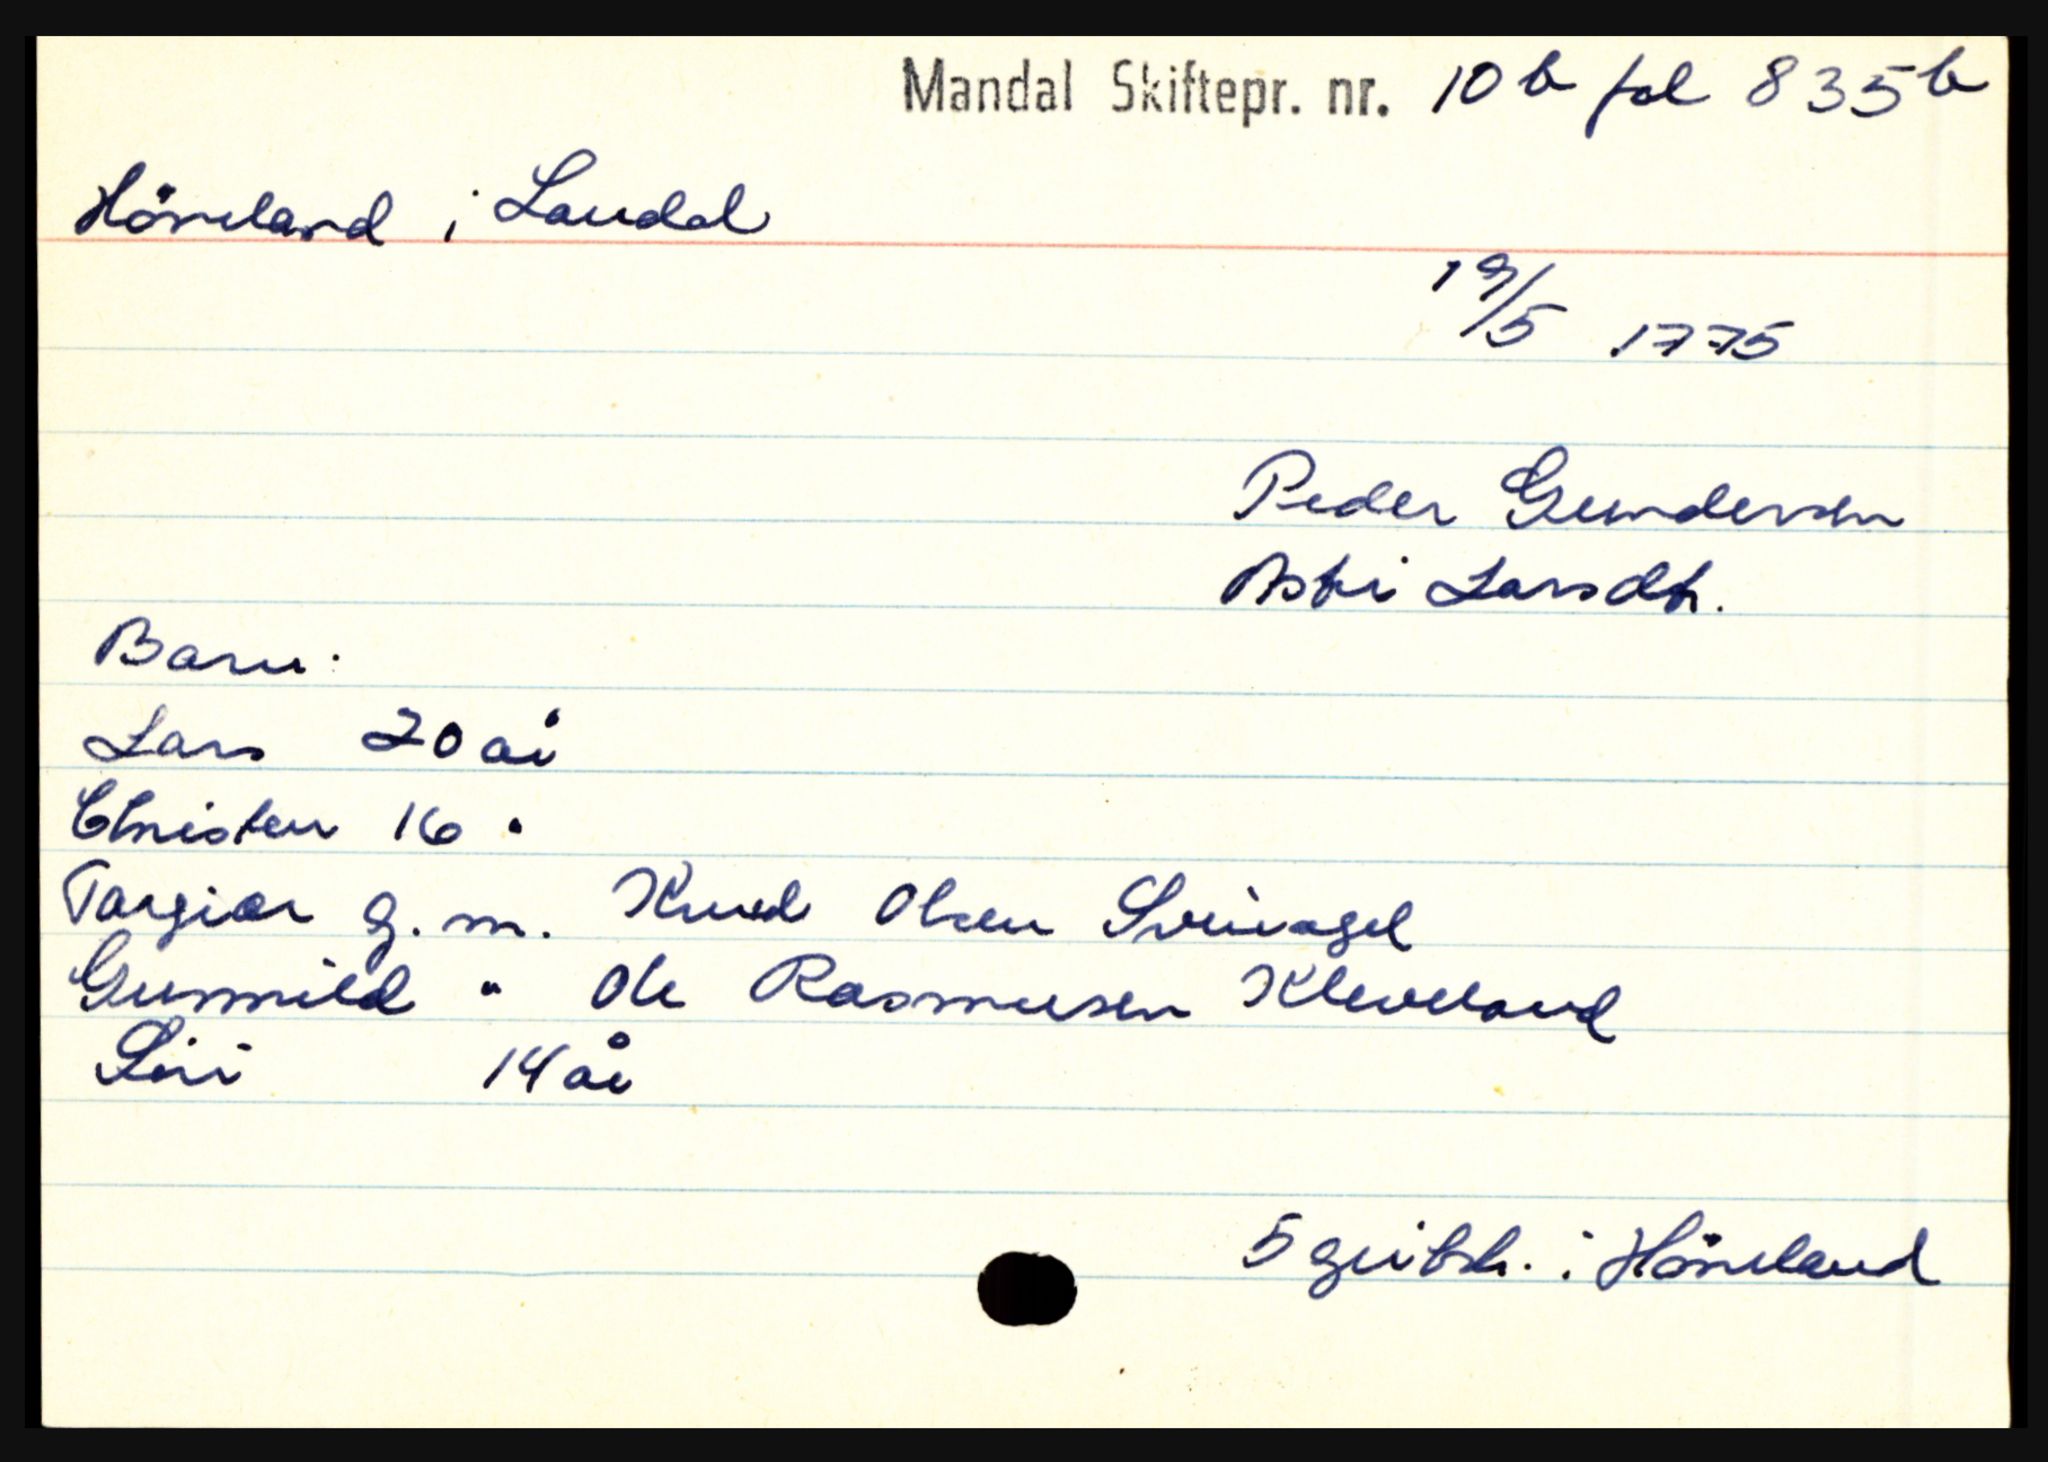 Mandal Skiftepr. nr. 10 b fol 835 b
Höneland i Laudal
19/5 1775
Peder Gundersen
Astri Larsdtr.
Barn:
Lars 20 år
Christen 16 "
Torgier g. m. Knud Olsen Sveinagel
Gunnild " Ole Rasmusen Kleveland
Siri 14 år
5 i Höneland